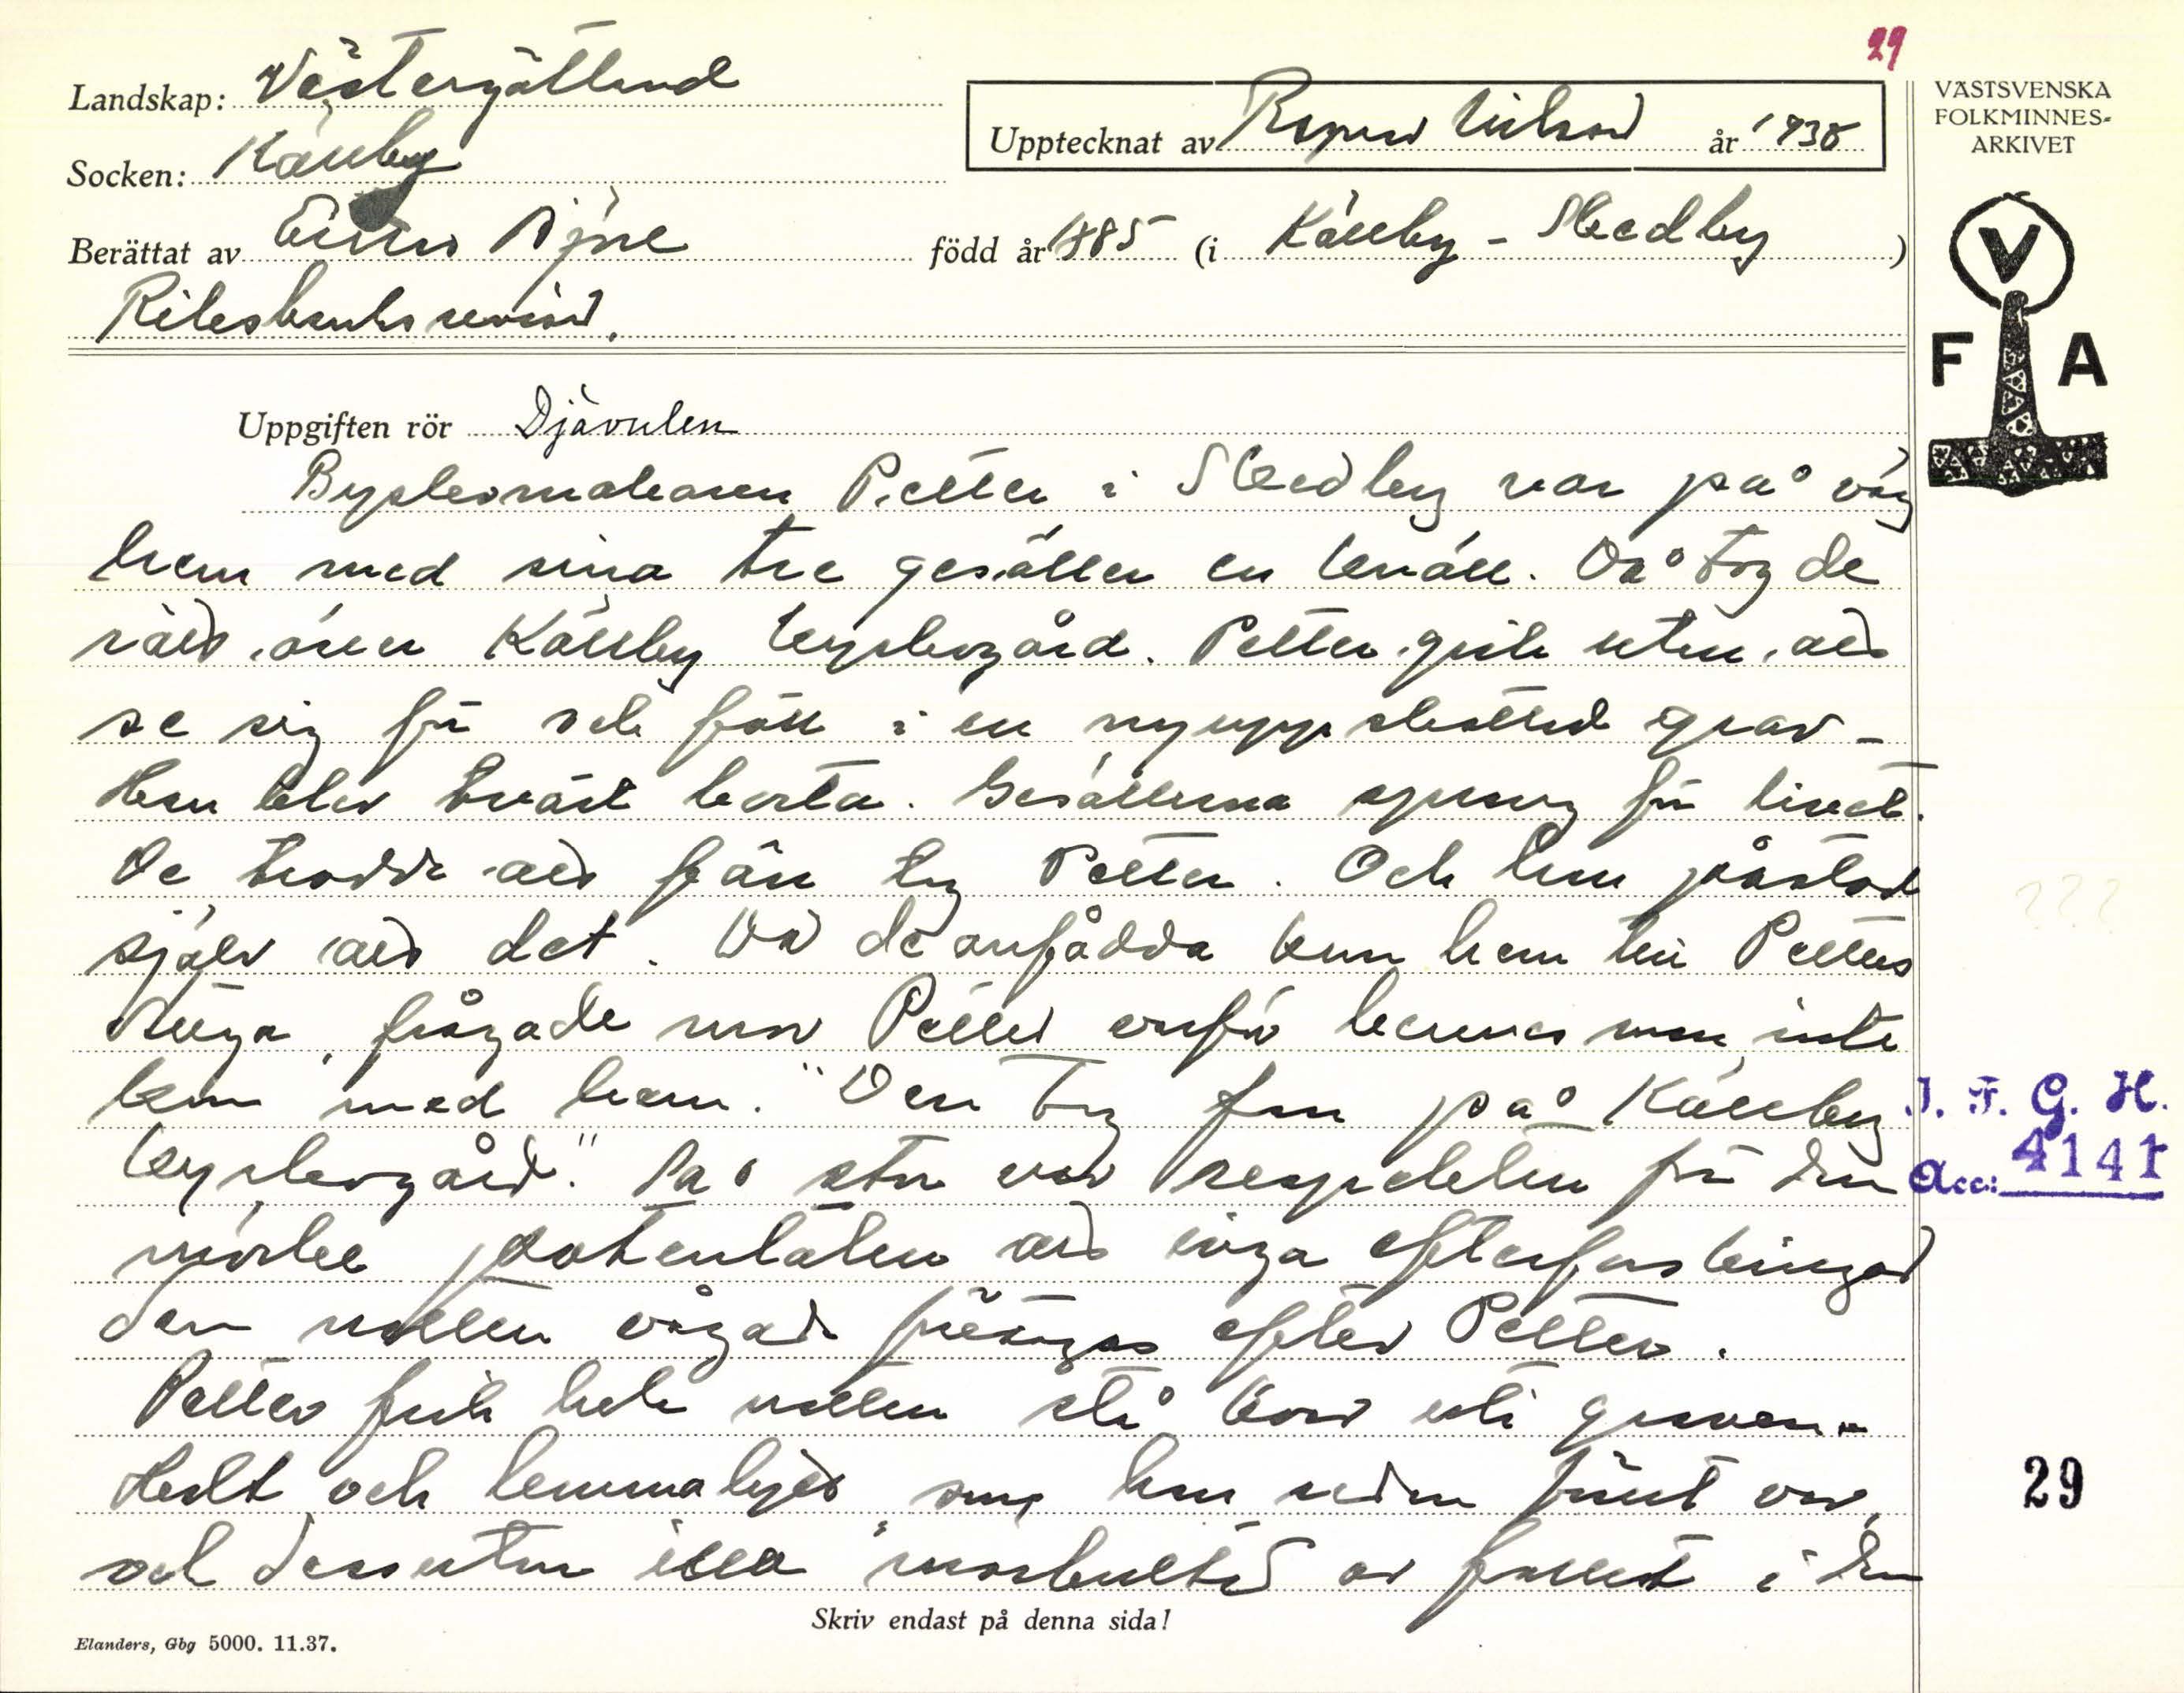 29
Landskap: Västergötland
Upptecknat av Ragnar Nilsson år 1938
Socken: Källby
Berättat av Einar Björe född år 1885 (i Källby - Skedby)
Riksbanksrevisor.
VÄSTSVENSKA
FOLKMINNES-
ARKIVET
V
F A
Uppgiften rör Djävulen
Byskomakaren Petter i Skedby var på väg
hem med sina tre gesäller en kväll. Då tog de
rätt över Källby kyrkogård. Petter gick utan att
se sig för och föll i en nyuppskottad grav -
Han blev tvärt borta. Gesällerna sprang för livet.
De trodde att fan tog Petter. Och han påstod
själv att det. Då de anfådda kom hem till Petters
stuga, frågade mor Petter varför hennes man inte
kom med hem. "Den tog fan på Källby
kyrkogård." Så stor var respekten för den
mörke potentaten att inga efterforskningar
den natten vågade företagas efter Petter.
Petter fick hela natten stå kvar uti graven.
Halt och lemmalytt som han redan förut var,
och dessutom illa mörbultad av fallet i den
J. F. G. H.
Acc: 4141
29
Skriv endast på denna sida!
Elanders, Gbg 5000. 11.37.